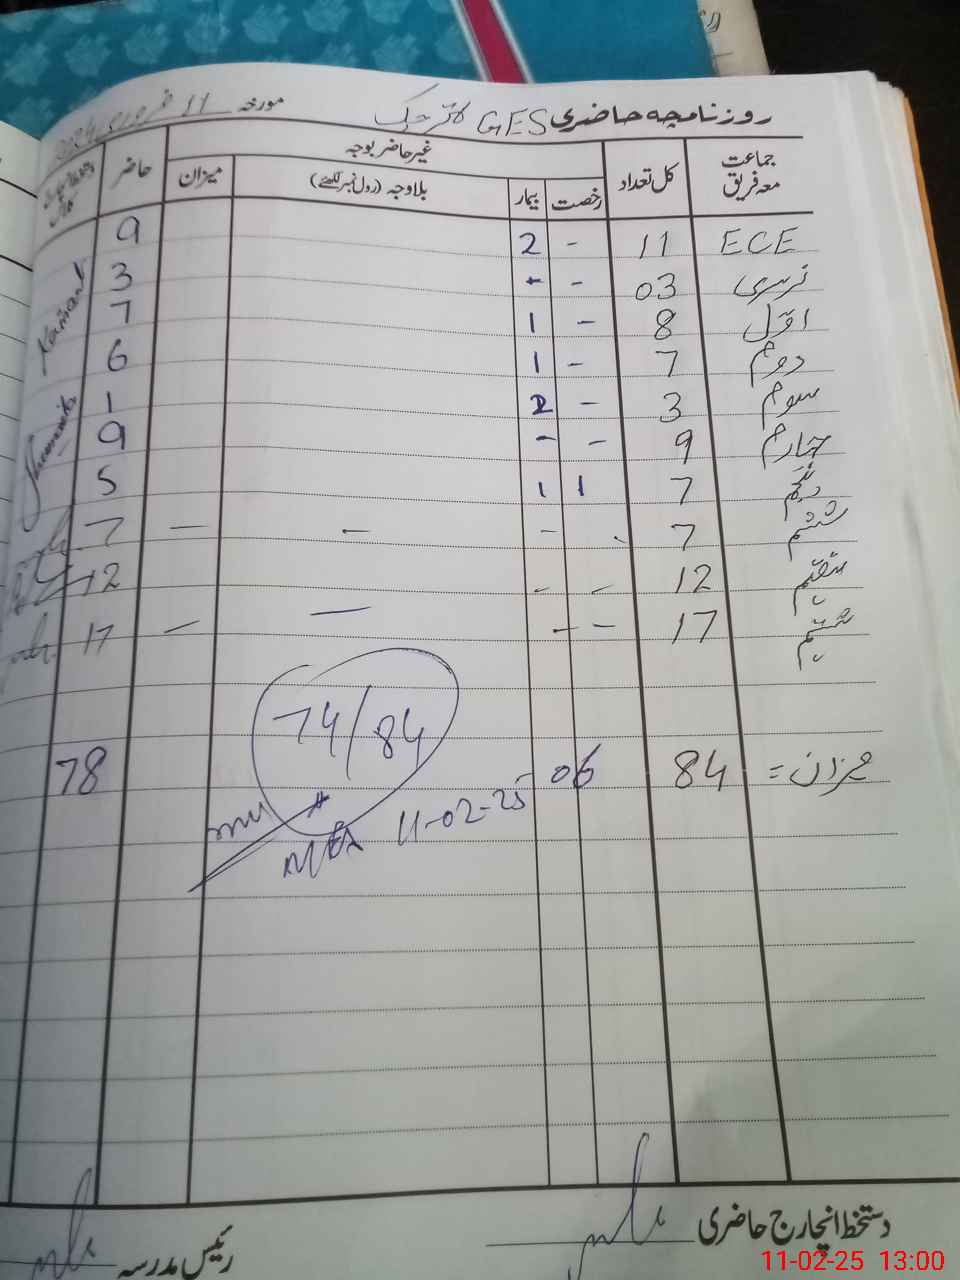 روزنامچہ حاضری GES مورخہ 11 فروری
جماعت معہ فریق کل تعداد غیر حاضر بوجہ حاضر
رخصت بیمار بلاوجہ (رول نمبر لکھئے) میزان
ECE 11 - 2 9
نرسری 03 - - 3
اول 8 - 1 7
دوم 7 - 1 6
سوم 3 - 2 1
چہارم 9 - - 9
پنجم 7 1 1 5
ششم 7 - - - 7
ہفتم 12 - - 12
ہشتم 17 - - - - 17
74/84
میزان = 84 06 78
11-02-25
دستخط انچارج حاضری رئیس مدرسہ
11-02-25 13:00